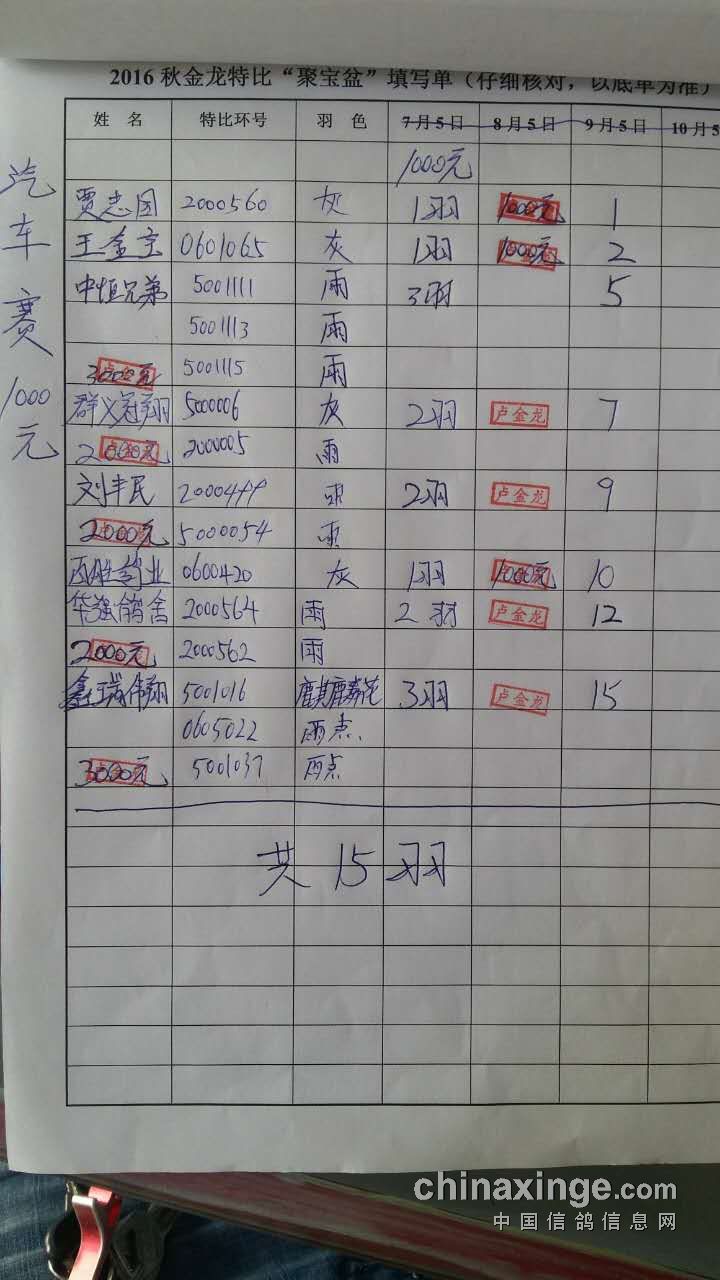 2016 秋金龙特比“聚宝盆”填写单（仔细核对，以底单为准）
姓 名 特比环号 羽 色 7月5日 8月5日 9月5日 10月5
1000元
汽车赛1000元
贾志国 2000560 灰 1羽 1000元 1
王金宝 0601065 灰 1羽 1000元 2
中恒兄弟 5001111 雨 3羽 5
5001113 雨
3000元 5001115 雨
群义冠翔 5000006 灰 2羽 卢金龙 7
2000元 2000005 雨
刘丰民 2000499 2羽 卢金龙 9
2000元 5000054
药业 0600420 灰 1羽 1000元 10
华强鸽舍 2000564 雨 2羽 卢金龙 12
2000元 2000562 雨
鑫瑞伟翔 5001016 麒麟花 3羽 卢金龙 15
0605022 雨点
3000元 5001037 雨点
共15羽
chinaxinge.com
中国信鸽信息网